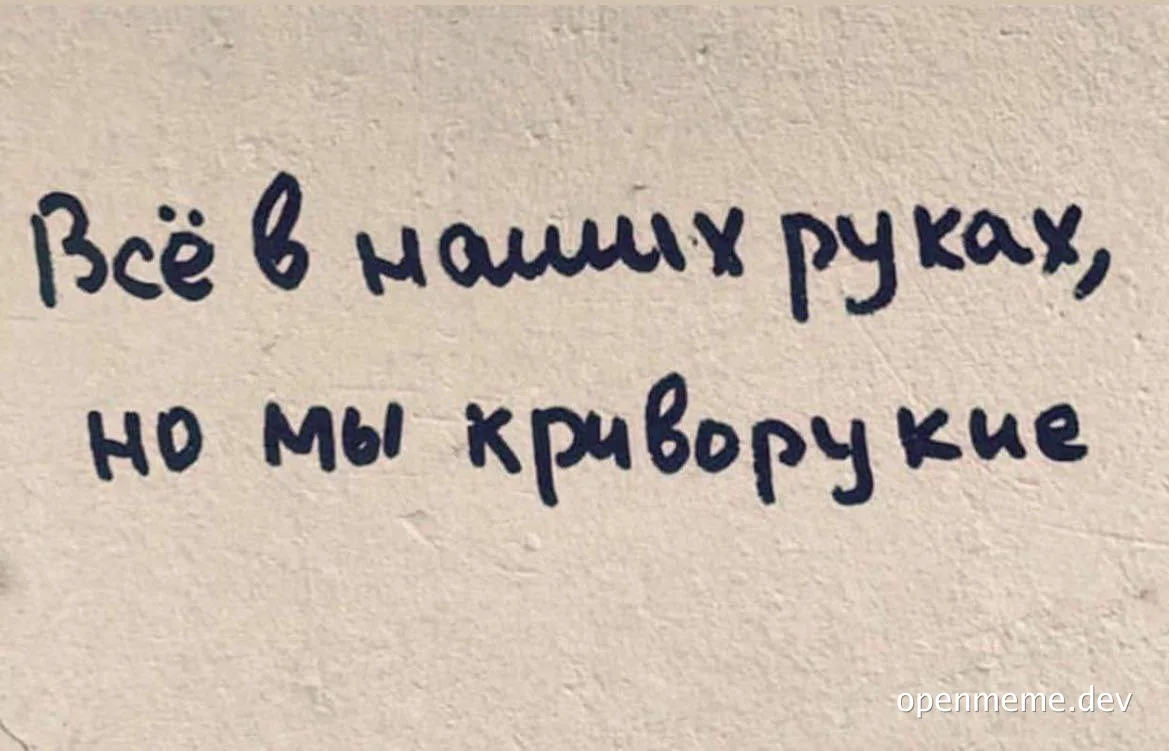 Всё в наших руках,
но мы криворукие
openmeme.dev